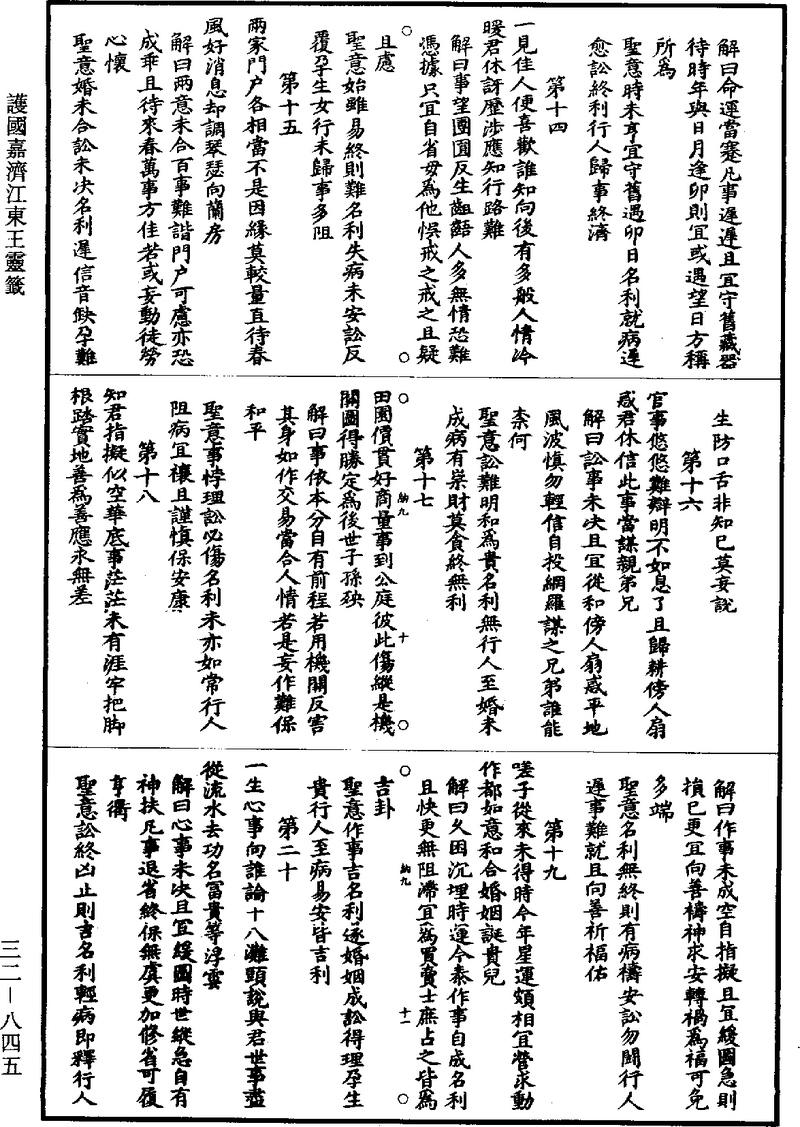 解曰命運當蹇凡事遲遲且宜守舊藏器
待時年與日月逢卯則宜或遇望日方稱
所為
聖意時未亨宜守舊遇卯日名利就病遲
愈訟終利行人歸事終濟
第十四
一見佳人便喜歡誰知向後有多般人情冷
暖君休訝歷涉應知行路難
解曰事望團圓反生齟齬人多無情恐難
憑據只宜自省毋為他悞戒之戒之且疑
且慮
聖意始雖易終則難名利失病未安訟反
覆孕生女行未歸事多阻
第十五
兩家門户各相當不是因緣莫較量直待春
風好消息却調琴瑟向蘭房
解曰兩意未合百事難諧門户可慮亦恐
成乖且待來春萬事方佳若或妄動徒勞
心懷
聖意婚未合訟未决名利遲信音缺孕難
生防口舌非知巳莫妄說
第十六
官事悠悠難辯明不如息了且歸耕傍人扇
惑君休信此事當謀親弟兄
解曰訟事未决且宜從和傍人扇惑平地
風波慎勿輕信自投網羅謀之兄弟誰能
柰何
聖意訟難明和為貴名利無行人至婚未
成病有祟財莫貪終無利
第十七
田園價貫好商量事到公庭彼此傷縱是機
關圖得勝定為後世子孫殃
解曰事依本分自有前程若用機關反害
其身如作交易當合人情若是妄作難保
和平
聖意事悖理訟必傷名利未亦如常行人
阻病宜禳且謹慎保安康
第十八
知君指擬似空華底事茫茫未有涯牢把脚
根踏實地善為善應永無差
解曰作事未成空自指擬且宜緩圖急則
損巳更宜向善禱神求安轉禍為福可免
多端
聖意名利無終則有病禱安訟勿鬪行人
遲事難就且向善祈福佑
第十九
嗟子從來未得時今年星運頗相宜營求動
作都如意和合婚姻誕貴兒
解曰久困沉埋時運今泰作事自成名利
且快更無阻滯宜為買賣士庶占之皆為
吉卦
聖意作事吉名利遂婚姻成訟得理孕生
貴行人至病易安皆吉利
第二十
一生心事向誰論十八灘頭說與君世事盡
從流水去功名富貴等浮雲
解曰心事未决且宜緩圖時世縱急自有
神扶凡事退省終保無虞更加修省可履
亨衢
聖意訟終凶止則吉名利輕病即釋行人
納九
十
納九
十一
護國嘉濟江東王靈籤
三二—八四五